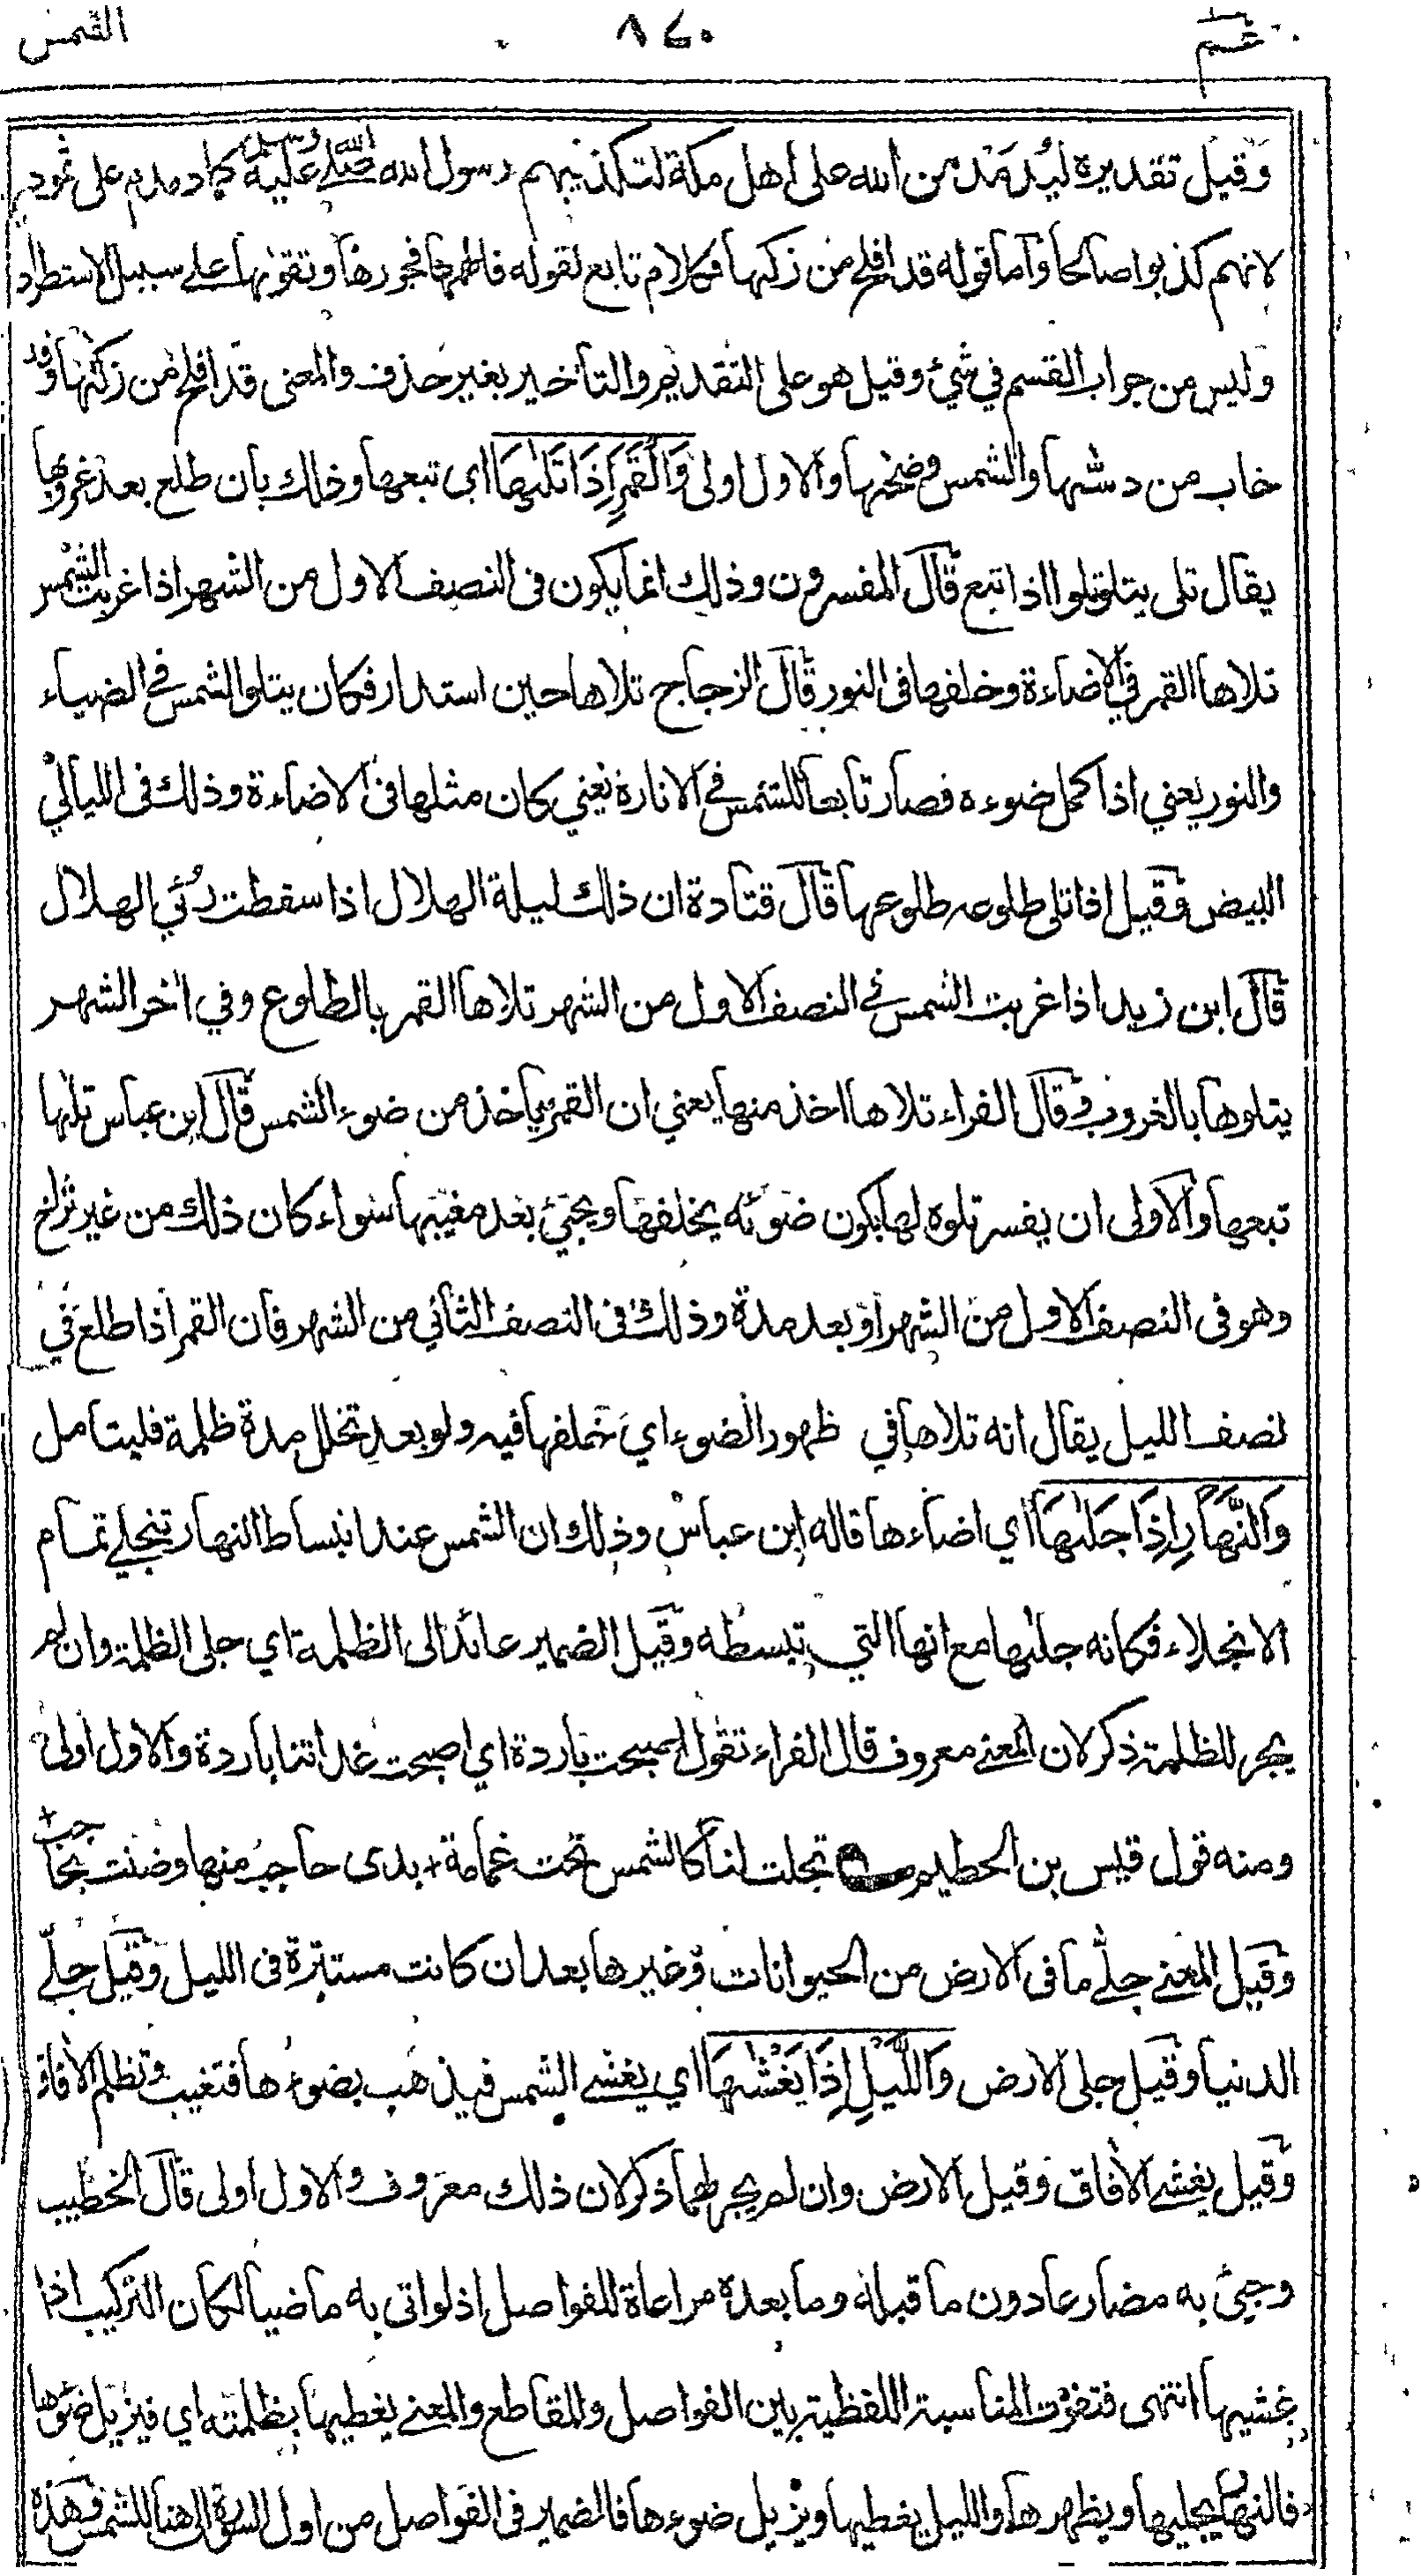 عم ١٤٠ الشمس
وقيل تقديره ليدمدمن الله على اهل مكة لتكذيبهم رسول الله صلى الله عليه وسلم كما دمدم على ثمود
لانهم كذبوا صالحا وأما قوله قد افلح من زكىها فكلام تابع لقوله فالهمها فجورها وتقوىها على سبيل الاستطراد
وليس من جواب القسم في شئ وقيل هو على التقديم والتأخير بغير حذف والمعنى قد افلح من زكىها وقد
خاب من دسىها والشمس وضحىها والاول اولى وَالْقَمَرِ اِذَا تَلٰىهَا اي تبعها وذلك بأن طلع بعد غروبها
يقال تلى يتلو تلوا اذا تبع قال المفسرون وذلك انما يكون فى النصف الاول من الشهر اذا غربت الشمس
تلاها القمر في الاضاءة وخلفها فى النور قال الزجاج تلاها حين استدار فكان يتلو الشمس في الضياء
والنور يعني اذا كمل ضوءه فصار تابعا للشمس في الانارة يعني كان مثلها فى الاضاءة وذلك فى الليالي
البيض وقيل اذا تلى طلوعه طلوعها قال قتادة ان ذلك ليلة الهلال اذا سقطت رئي الهلال
قال ابن زيد اذا غربت الشمس في النصف الاول من الشهر تلاها القمر بالطلوع وفي اخر الشهر
يتلوها بالغروب وقال الفراء تلاها اخذ منها يعني ان القمر يأخذ من ضوء الشمس قال ابن عباس تلىها
تبعها والاولى ان يفسر تلوه لها بكون ضوئه يخلفها ويجئ بعد مغيبها سواء كان ذلك من غير تراخ
وهو فى النصف الاول من الشهر أو بعد مدة وذلك فى النصف الثاني من الشهر فان القمر اذا طلع في
نصف الليل يقال انه تلاها في ظهور الضوء اي خلفها فيه ولو بعد تخلل مدة ظلمة فليتامل
وَالنَّهَارِ اِذَا جَلّٰىهَا اي اضاءها قاله ابن عباس وذلك ان الشمس عند انبساط النهار تنجلي تمام
الانجلاء فكانه جلىها مع انها التي تبسطه وقيل الضمير عائد الى الظلمة اي جلى الظلمة وان لم
يجر للظلمة ذكر لان المعنى معروف قال الفراء تقول اصبحت باردة اي اصبحت غداتنا باردة والاول اولى
ومنه قول قيس بن الحطيم تجلت لنا كالشمس تحت غمامة + بدى حاجب منها وضنت بحاجب +
وقيل المعنى جلّى ما فى الارض من الحيوانات وغيرها بعد ان كانت مستترة فى الليل وقيل جلّى
الدنيا وقيل جلى الارض وَاللَّيْلِ اِذَا يَغْشٰىهَا اي يغشى الشمس فيذهب بضوءها فتغيب وتظلم الأفاق
وقيل يغشى الأفاق وقيل الارض وان لم يجر لهما ذكر لان ذلك معروف والاول اولى قال الخطيب
وجئ به مضارعا دون ما قبله وما بعده مراعاة للفواصل اذ لو اتى به ماضيا لكان التركيب اذا
غشيها انتهى فتفوت المناسبة اللفظية بين الفواصل والمقاطع والمعنى يغطيها بظلمته اي فيزيل ضوءها
فالنهار يجليها ويظهرها والليل يغطيها ويزيل ضوءها فالضمير فى الفواصل من اول السورة الى هنا للشمس فهذه